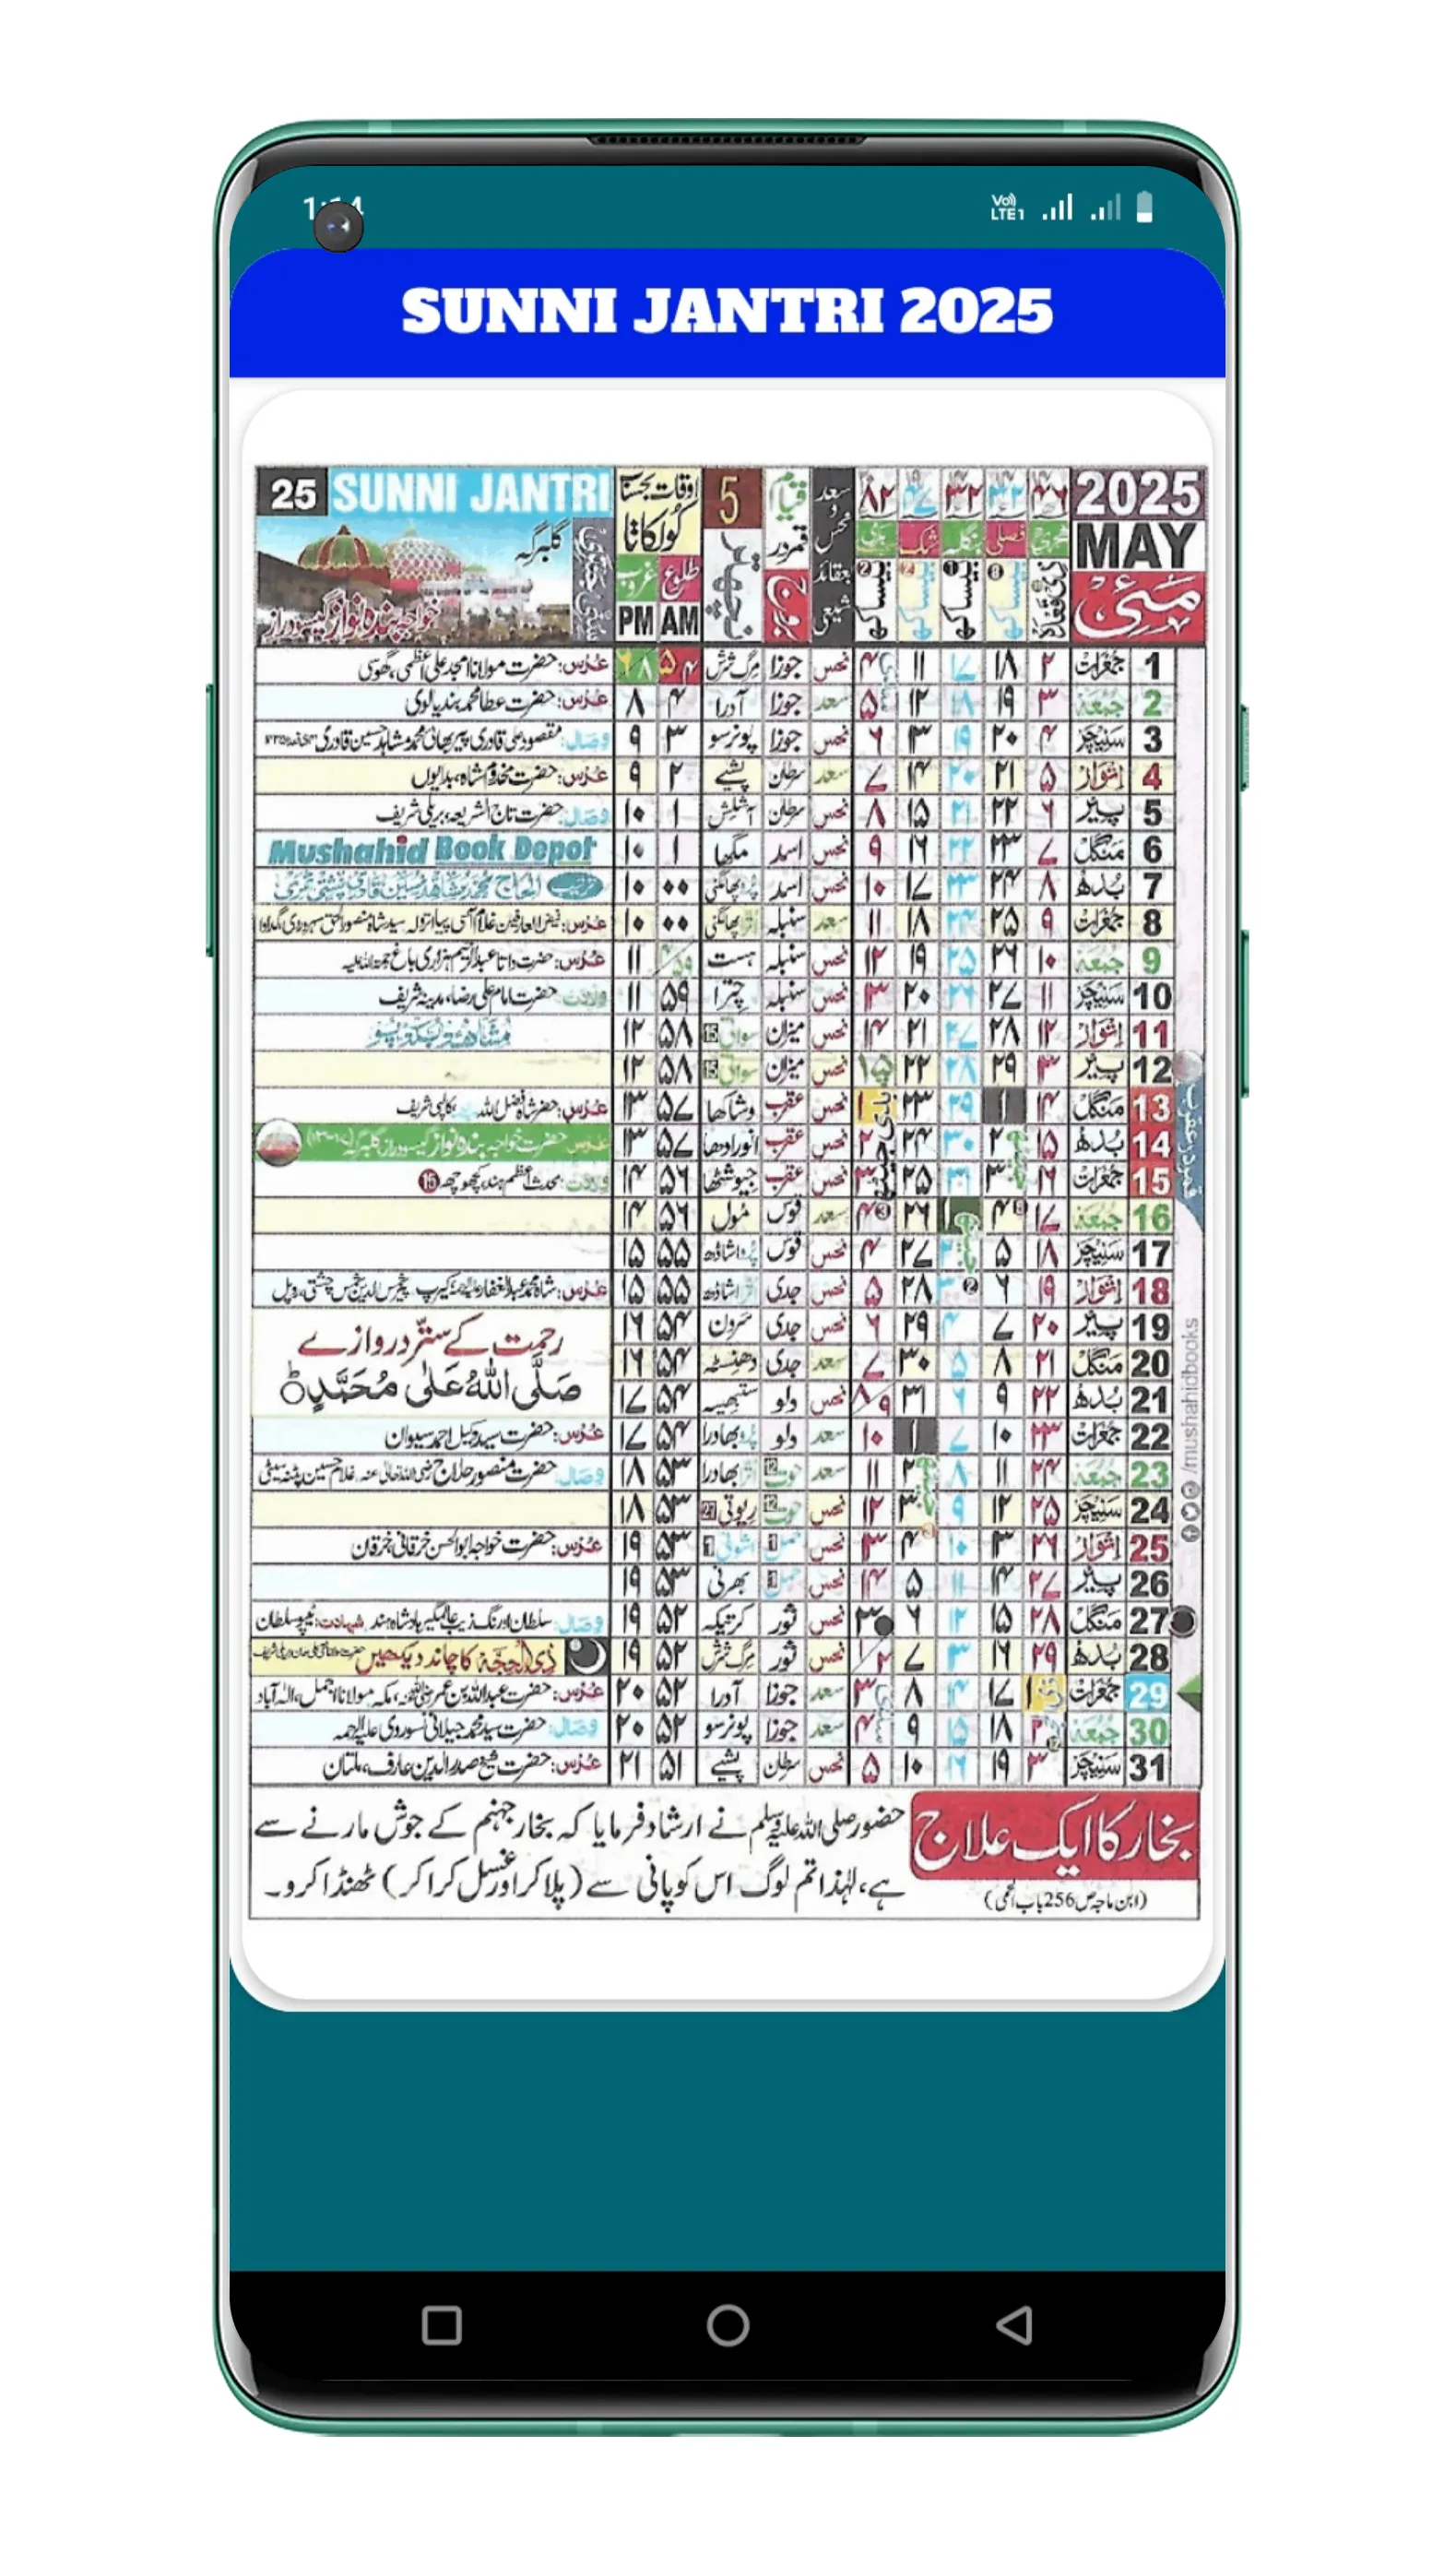 1:14
Vo) LTE1
SUNNI JANTRI 2025
2025 ۴۶ ۳۲ ۳۲ ۴۷ ۸۲ سعد و نحس بعقائد شیعی قیام قمر در بروج 5 نچھتر اوقات بحساب کولکاتا SUNNI JANTRI 25
MAY ہجری فصلی بنگلہ شک بدی طلوع غروب گلبرگہ
مئی ذی قعدہ بیساکھ بیساکھ بیساکھ بیساکھ AM PM خواجہ بندہ نواز گیسودراز
1 جمعرات ۲ ۱۸ ۱۷ ۱۱ ۴ نحس جوزا مرگ شرش ۵ ۴ ۶ ۸ عرس: حضرت مولانا امجد علی اعظمی، گھوسی
2 جمعہ ۳ ۱۹ ۱۸ ۱۲ ۵ سعد جوزا آدرا ۴ ۸ عرس: حضرت عطا محمد بندیالوی
3 سنیچر ۴ ۲۰ ۱۹ ۱۳ ۶ نحس جوزا پونرسو ۳ ۹ وصال: مقصود علی قادری پیر بھائی محمد مشاہد حسین قادری
4 اتوار ۵ ۲۱ ۲۰ ۱۴ ۷ سعد سرطان پشیے ۲ ۹ عرس: حضرت مخدوم شاہ، بدایوں
5 پیر ۶ ۲۲ ۲۱ ۱۵ ۸ نحس سرطان آشلیش ۱ ۱۰ وصال: حضرت تاج الشریعہ، بریلی شریف
6 منگل ۷ ۲۳ ۲۲ ۱۶ ۹ نحس اسد مگھا ۱ ۱۰ Mushahid Book Depot
7 بدھ ۸ ۲۴ ۲۳ ۱۷ ۱۰ نحس اسد پُر پھاگنی ۰۰ ۱۰ الحاج محمد مشاہد حسین قادری چشتی
8 جمعرات ۹ ۲۵ ۲۴ ۱۸ ۱۱ سعد سنبلہ اتر پھاگنی ۰۰ ۱۰ عرس:
9 جمعہ ۱۰ ۲۶ ۲۵ ۱۹ ۱۲ نحس سنبلہ ہست ۴/۵۹ ۱۱ عرس: حضرت داتا عبدالرحیم ہزاری باغ رحمۃ اللہ علیہ
10 سنیچر ۱۱ ۲۷ ۲۶ ۲۰ ۱۳ نحس سنبلہ چترا ۵۹ ۱۱ ولادت: حضرت امام علی رضا، مدینہ شریف
11 اتوار ۱۲ ۲۸ ۲۷ ۲۱ ۱۴ نحس میزان سواتی 15 ۵۸ ۱۲ مشاہد بکڈپو
12 پیر ۱۳ ۲۹ ۲۸ ۲۲ ۱۵ نحس میزان سواتی 15 ۵۸ ۱۲
13 منگل ۱۴ ۱ ۲۹ ۲۳ ۱ نحس عقرب وشاکھا ۵۷ ۱۳ عرس: حضرت شاہ فضل اللہ کالپی شریف
14 بدھ ۱۵ ۲ ۳۰ ۲۴ ۲ نحس عقرب انورادھا ۵۷ ۱۳ عرس حضرت خواجہ بندہ نواز گیسودراز گلبرگہ
15 جمعرات ۱۶ ۳ ۳۱ ۲۵ ۳ نحس عقرب جیوشٹھا ۵۶ ۱۴ ولادت: محدث اعظم ہند، کچھوچھہ 15
16 جمعہ ۱۷ ۴ ۱ ۲۶ ۴ سعد قوس مُول ۵۶ ۱۴
17 سنیچر ۱۸ ۵ ۲ ۲۷ ۴ نحس قوس پُر اشاڈھ ۵۵ ۱۵
18 اتوار ۱۹ ۶ ۳ ۲۸ ۵ نحس جدی اتر اشاڈھ ۵۵ ۱۵ عرس: شاہ محمد عبدالغفار
19 پیر ۲۰ ۷ ۴ ۲۹ ۶ نحس جدی سرون ۵۴ ۱۶ رحمت کے ستر دروازے
20 منگل ۲۱ ۸ ۵ ۳۰ ۷ سعد جدی دھنسٹہ ۵۴ ۱۶ صَلَّی اللہُ عَلٰی مُحَمَّدٍ
21 بدھ ۲۲ ۹ ۶ ۳۱ ۸/۹ نحس دلو ستبھیہ ۵۴ ۱۷
22 جمعرات ۲۳ ۱۰ ۷ ۱ ۱۰ سعد دلو پُر بھادرا ۵۴ ۱۷ عرس: حضرت سید وکیل احمد سیوان
23 جمعہ ۲۴ ۱۱ ۸ ۲ ۱۱ سعد حوت 12 اتر بھادرا ۵۳ ۱۸ وصال: حضرت منصور حلاج رضی اللہ تعالیٰ عنہ، غلام حسین پٹنہ سیٹی
24 سنیچر ۲۵ ۱۲ ۹ ۳ ۱۲ نحس حوت 12 ریوتی 27 ۵۳ ۱۸
25 اتوار ۲۶ ۱۳ ۱۰ ۴ ۱۳ نحس حمل 1 اشونی 1 ۵۳ ۱۹ عرس: حضرت خواجہ ابوالحسن خرقانی خرقان
26 پیر ۲۷ ۱۴ ۱۱ ۵ ۱۴ نحس حمل 1 بھرنی ۵۳ ۱۹
27 منگل ۲۸ ۱۵ ۱۲ ۶ ۳۰ نحس ثور کرتیکہ ۵۲ ۱۹ وصال: سلطان اورنگ زیب عالمگیر بادشاہ ہند شہادت: ٹیپو سلطان
28 بدھ ۲۹ ۱۶ ۱۳ ۷ ۱/۲ نحس ثور مرگ شرش ۵۲ ۱۹ ذی الحجہ کا چاند دیکھیں
29 جمعرات ۱ ۱۷ ۱۴ ۸ ۳ سعد جوزا آدرا ۵۲ ۲۰ عرس: حضرت عبداللہ بن عمر رضی اللہ عنہ، مکہ، مولانا اجمل، الہ آباد
30 جمعہ ۲ ۱۸ ۱۵ ۹ ۴ سعد جوزا پونرسو ۵۲ ۲۰ وصال: حضرت سید محمد جیلانی سوروی علیہ الرحمہ
31 سنیچر ۳ ۱۹ ۱۶ ۱۰ ۵ نحس سرطان پشیے ۵۱ ۲۱ عرس: حضرت شیخ صدرالدین عارف، ملتان
قمر در عقرب
/mushahidbooks
بخار کا ایک علاج
(ابن ماجہ ص256 باب الحمی)
حضور صلی اللہ علیہ وسلم نے ارشاد فرمایا کہ بخار جہنم کے جوش مارنے سے
ہے، لہٰذا تم لوگ اس کو پانی سے (پلا کر اور غسل کرا کر) ٹھنڈا کرو۔